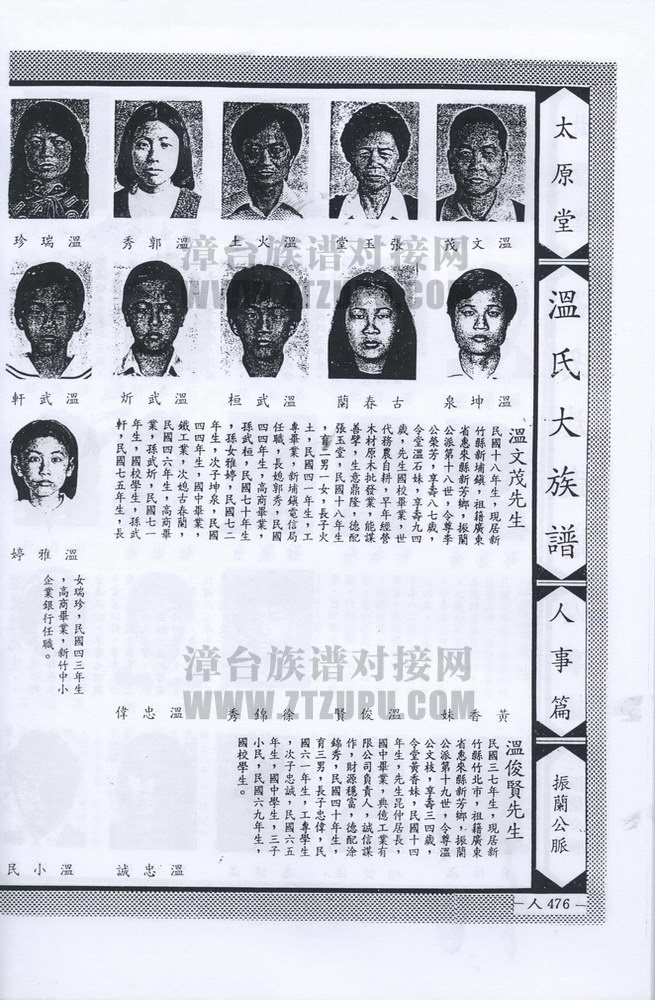 太原堂
溫氏大族譜
人事篇
振蘭公脈
溫文茂
張玉堂
溫火土
溫郭秀
溫瑞珍
溫坤泉
古春蘭
溫武桓
溫武炘
溫武軒
溫雅婷
溫文茂先生
民國十八年生，現居新
竹縣新埔鎮，祖籍廣東
省惠來縣新芳鄉，振蘭
公派第十八世，令尊李
公榮芳，享壽八七歲，
令堂溫石妹，享壽九四
歲，先生國校畢業，世
代務農自耕，早年經營
木材原木批發業，能謀
善擘，生意鼎隆，德配
張玉堂，民國十八年生
，育二男一女，長子火
土，民國四一年生，工
專畢業，新埔鎮電信局
任職，長媳郭秀，民國
四四年生，高商畢業，
孫武桓，民國七十年生
，孫女雅婷，民國七二
年生，次子坤泉，民國
四四年生，國中畢業，
鐵工業，次媳古春蘭，
民國四六年生，高商畢
業，孫武炘，民國七一
年生，國校學生，孫武
軒，民國七五年生，長
女瑞珍，民國四三年生
，高商畢業，新竹中小
企業銀行任職。
黃香妹
溫俊賢
徐錦秀
溫忠偉
溫忠誠
溫小民
溫俊賢先生
民國三七年生，現居新
竹縣竹北市，祖籍廣東
省惠來縣新芳鄉，振蘭
公派第十九世，令尊溫
公文枝，享壽三四歲，
令堂黃香妹，民國十四
年生，先生昆仲居長，
國中畢業，典億工業有
限公司負責人，誠信謀
作，財源穩富，德配涂
錦秀，民國四十年生，
育三男，長子忠偉，民
國六一年生，工專學生
，次子忠誠，民國六五
年生，國中學生，三子
小民，民國六九年生，
國校學生。
人476
漳台族谱对接网
WWW.ZTZUPU.COM
漳台族谱对接网
WWW.ZTZUPU.COM